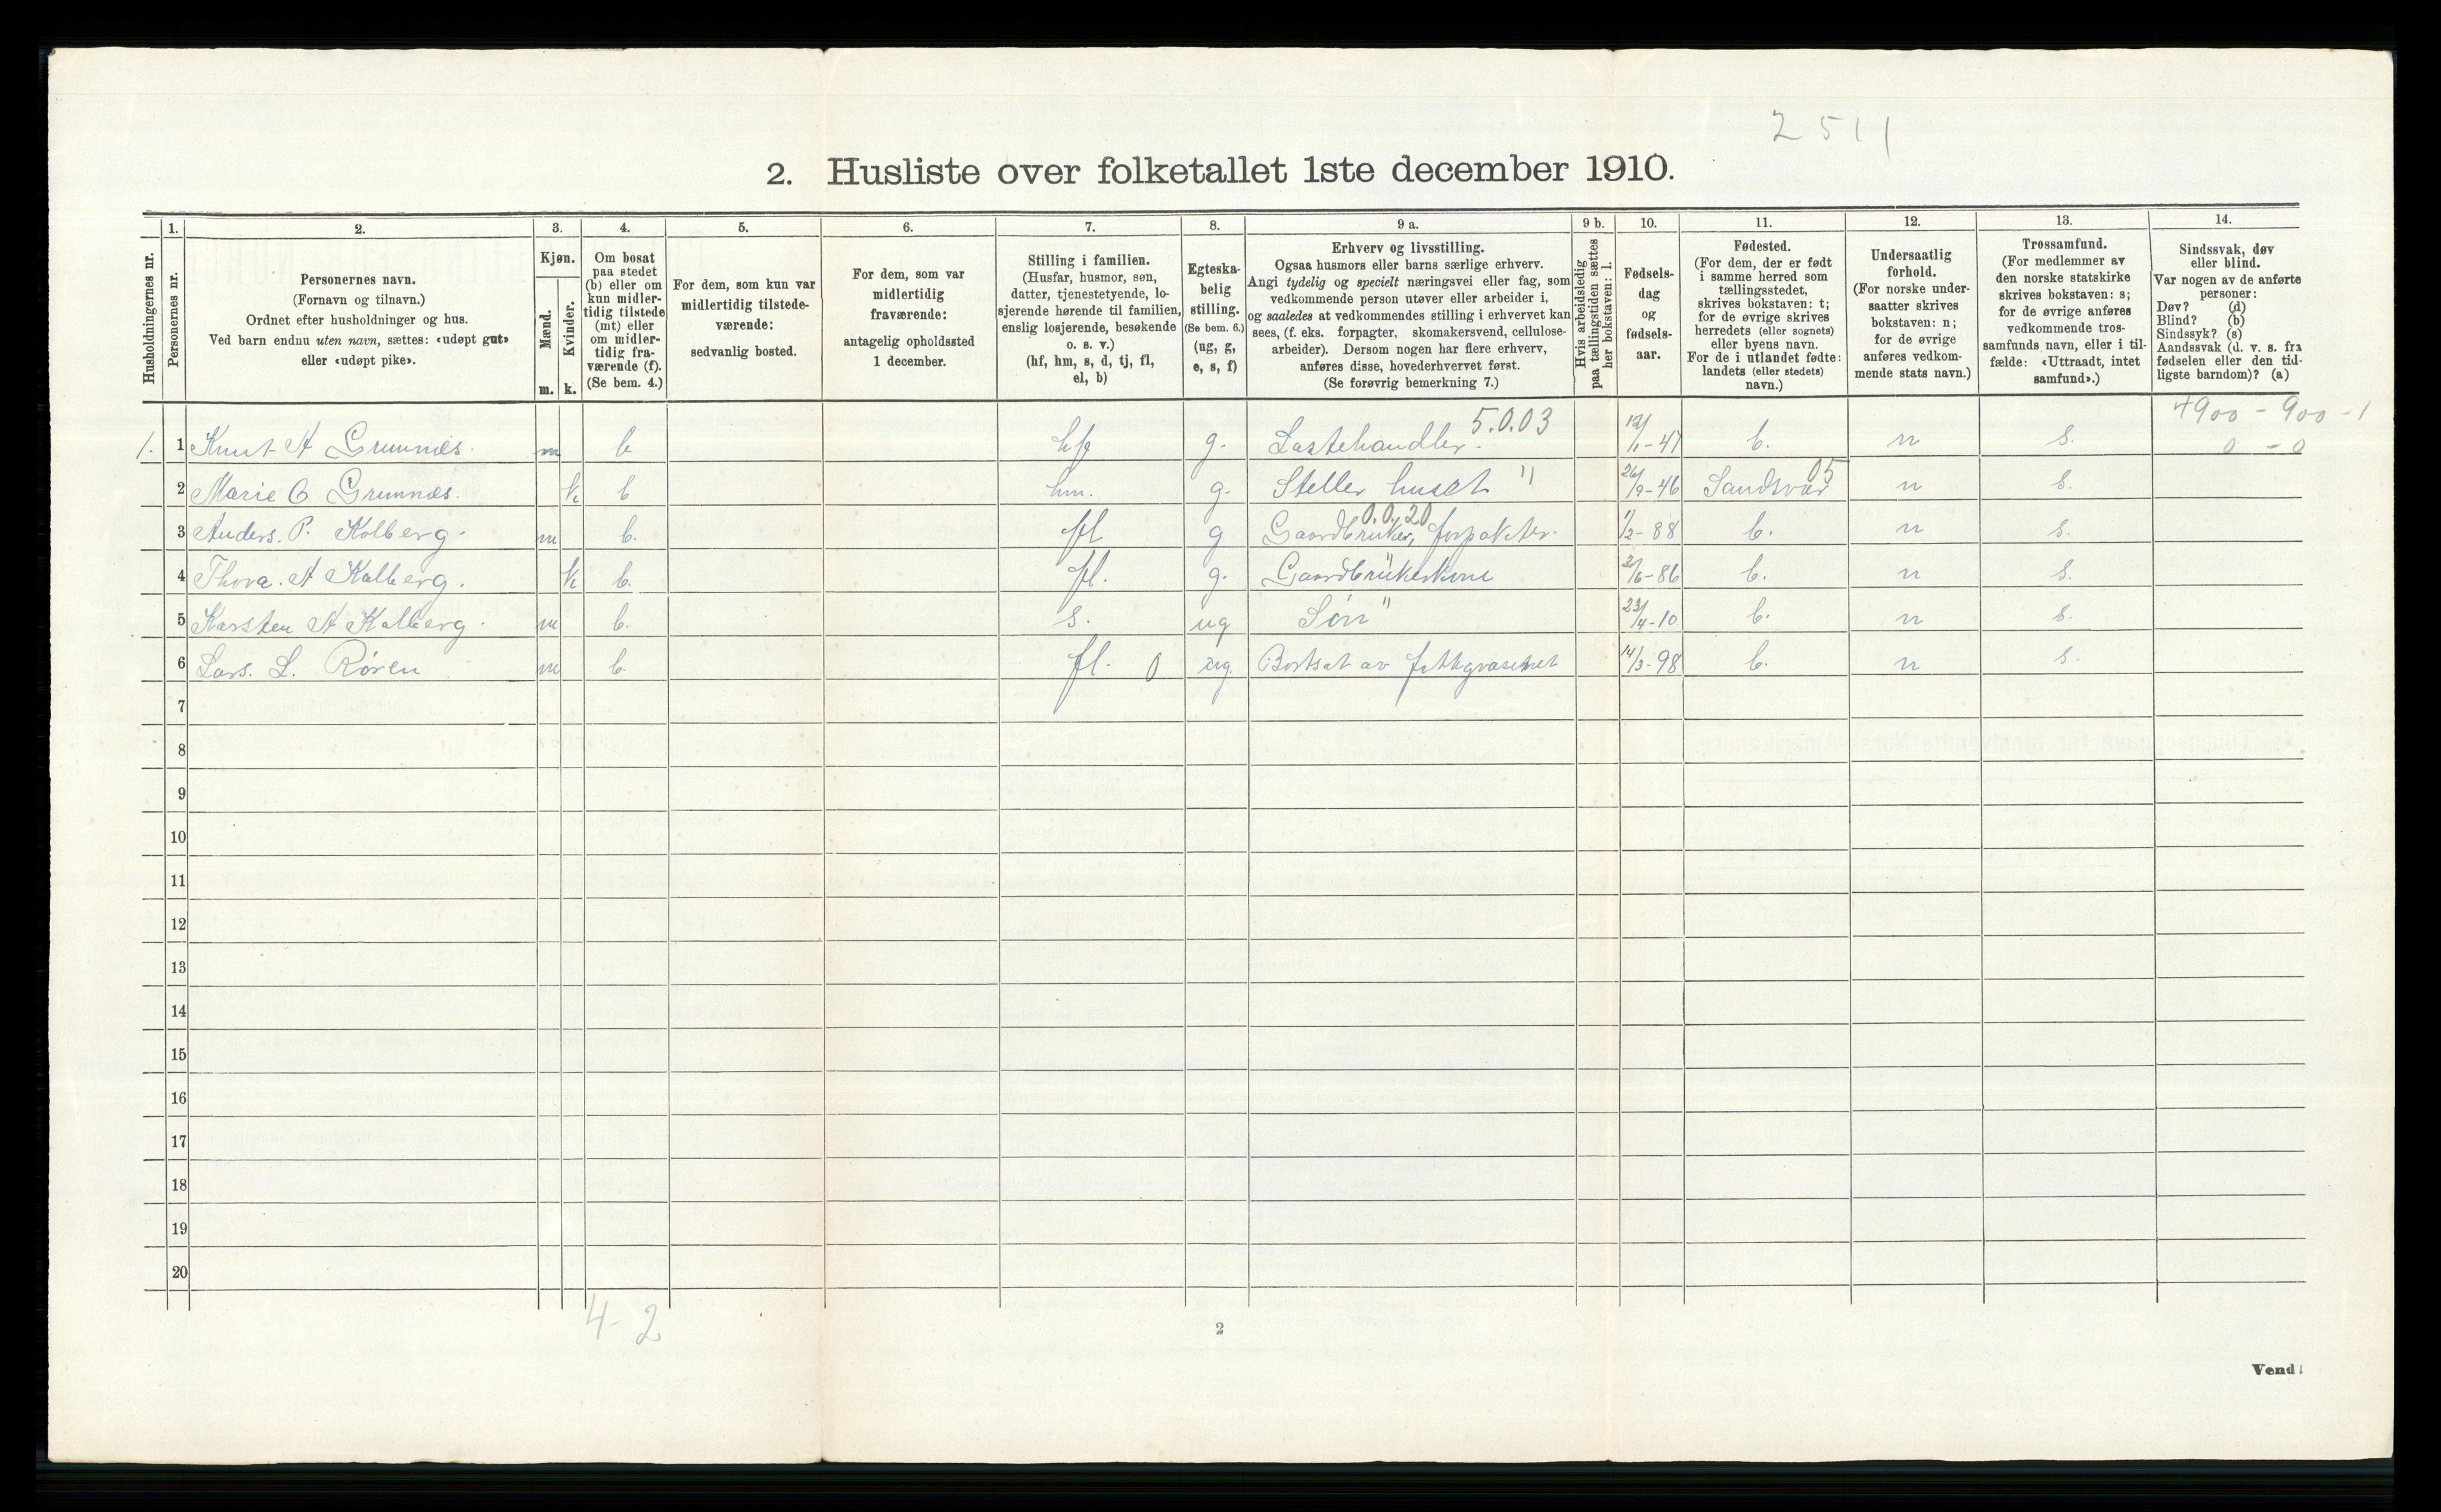 2511
2. Husliste over folketallet 1ste december 1910.
Husholdningernes nr.
1. Personernes nr.
2. Personernes navn.
(Fornavn og tilnavn.)
Ordnet efter husholdninger og hus.
Ved barn endnu uten navn, sættes: «udøpt gut»
eller «udøpt pike».
3. Kjøn.
Mænd. m.
Kvinder. k.
4. Om bosat
paa stedet
(b) eller om
kun midler-
tidig tilstede
(mt) eller
om midler-
tidig fra-
værende (f).
(Se bem. 4.)
5. For dem, som kun var
midlertidig tilstede-
værende:
sedvanlig bosted.
6. For dem, som var
midlertidig
fraværende:
antagelig opholdssted
1 december.
7. Stilling i familien.
(Husfar, husmor, søn,
datter, tjenestetyende, lo-
sjerende hørende til familien,
enslig losjerende, besøkende
o. s. v.)
(hf, hm, s, d, tj, fl,
el, b)
8. Egteska-
belig
stilling.
(Se bem. 6.)
(ug, g,
e, s, f)
9 a. Erhverv og livsstilling.
Ogsaa husmors eller barns særlige erhverv.
Angi tydelig og specielt næringsvei eller fag, som
vedkommende person utøver eller arbeider i,
og saaledes at vedkommendes stilling i erhvervet kan
sees, (f. eks. forpagter, skomakersvend, cellulose-
arbeider). Dersom nogen har flere erhverv,
anføres disse, hovederhvervet først.
(Se forøvrig bemerkning 7.)
9 b. Hvis arbeidsledig
paa tællingstiden sættes
her bokstaven: l.
10. Fødsels-
dag
og
fødsels-
aar.
11. Fødested.
(For dem, der er født
i samme herred som
tællingsstedet,
skrives bokstaven: t;
for de øvrige skrives
herredets (eller sognets)
eller byens navn.
For de i utlandet fødte:
landets (eller stedets)
navn.)
12. Undersaatlig
forhold.
(For norske under-
saatter skrives
bokstaven: n;
for de øvrige
anføres vedkom-
mende stats navn.)
13. Trossamfund.
(For medlemmer av
den norske statskirke
skrives bokstaven: s;
for de øvrige anføres
vedkommende tros-
samfunds navn, eller i til-
fælde: «Uttraadt, intet
samfund».)
14. Sindssvak, døv
eller blind.
Var nogen av de anførte
personer:
Døv? (d)
Blind? (b)
Sindssyk? (s)
Aandssvak (d. v. s. fra
fødselen eller den tid-
ligste barndom)? (a)
5.0.03 4900 - 900 - 1
1. 1 Knut A Grumnæs. m b hf g. Lastehandler. 12/1-47 t. n s. 0 - 0
05
2 Marie O Grumnæs. k b hm. g. Steller huset " 26/9-46 Sandsvær n s.
0.0.20
3 Anders. P. Kolberg. m b. fl g Gaardbruker, forpakter. 1/2-88 t. n s.
4 Thora. A Kolberg. k b. fl. g. Gaardbrukerkone 3/6-86 t. n s.
5 Karsten A Kolberg. m b. s. ug Søn " 23/4-10 t. n s.
6 Lars. L. Røren m b. fl. 0 ug. Bortsat av fattigvæsenet 14/3-98 t. n s.
7
8
9
10
11
12
13
14
15
16
17
18
19
20
4-2
2
Vend!